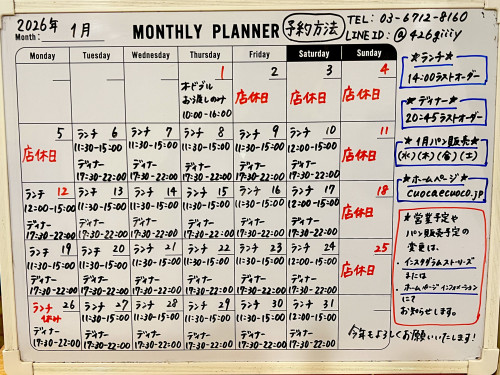 2026年
Month: 1月
MONTHLY PLANNER
予約方法
TEL: 03-6712-8160
LINE ID: @426giiiy
Monday Tuesday Wednesday Thursday Friday Saturday Sunday
1 2 3 4
オードブル
お渡しのみ
10:00-16:00
店休日 店休日 店休日
5 ランチ 6 ランチ 7 ランチ 8 ランチ 9 ランチ 10 11
店休日 11:30-15:00 11:30-15:00 11:30-15:00 11:30-15:00 11:30-15:00 店休日
ディナー ディナー ディナー ディナー ディナー
17:30-22:00 17:30-22:00 17:30-22:00 17:30-22:00 17:30-22:00
ランチ 12 ランチ 13 ランチ 14 ランチ 15 ランチ 16 ランチ 17 18
12:00-15:00 11:30-15:00 11:30-15:00 11:30-15:00 11:30-15:00 12:00-15:00 店休日
ディナー ディナー ディナー ディナー ディナー ディナー
17:30-22:00 17:30-22:00 17:30-22:00 17:30-22:00 17:30-22:00 17:30-22:00
ランチ 19 ランチ 20 ランチ 21 ランチ 22 ランチ 23 ランチ 24 25
11:30-15:00 11:30-15:00 11:30-15:00 11:30-15:00 11:30-15:00 11:30-15:00 店休日
ディナー ディナー ディナー ディナー ディナー ディナー
17:30-22:00 17:30-22:00 17:30-22:00 17:30-22:00 17:30-22:00 17:30-22:00
ランチ 26 ランチ 27 ランチ 28 ランチ 29 ランチ 30 ランチ 31
休み 11:30-15:00 11:30-15:00 11:30-15:00 11:30-15:00 12:00-15:00
ディナー ディナー ディナー ディナー ディナー ディナー
17:30-22:00 17:30-22:00 17:30-22:00 17:30-22:00 17:30-22:00 17:30-22:00
★ランチ★
14:00ラストオーダー
★ディナー★
20:45ラストオーダー
★1月パン販売★
(水)(木)(金)(土)
★ホームページ★
cuocaecuoco.jp
★営業予定や
パン販売予定の
変更は、
・インスタグラムストーリーズ
または
・ホームページインフォメーション
にて
お知らせします。
今年もよろしくお願いいたします!